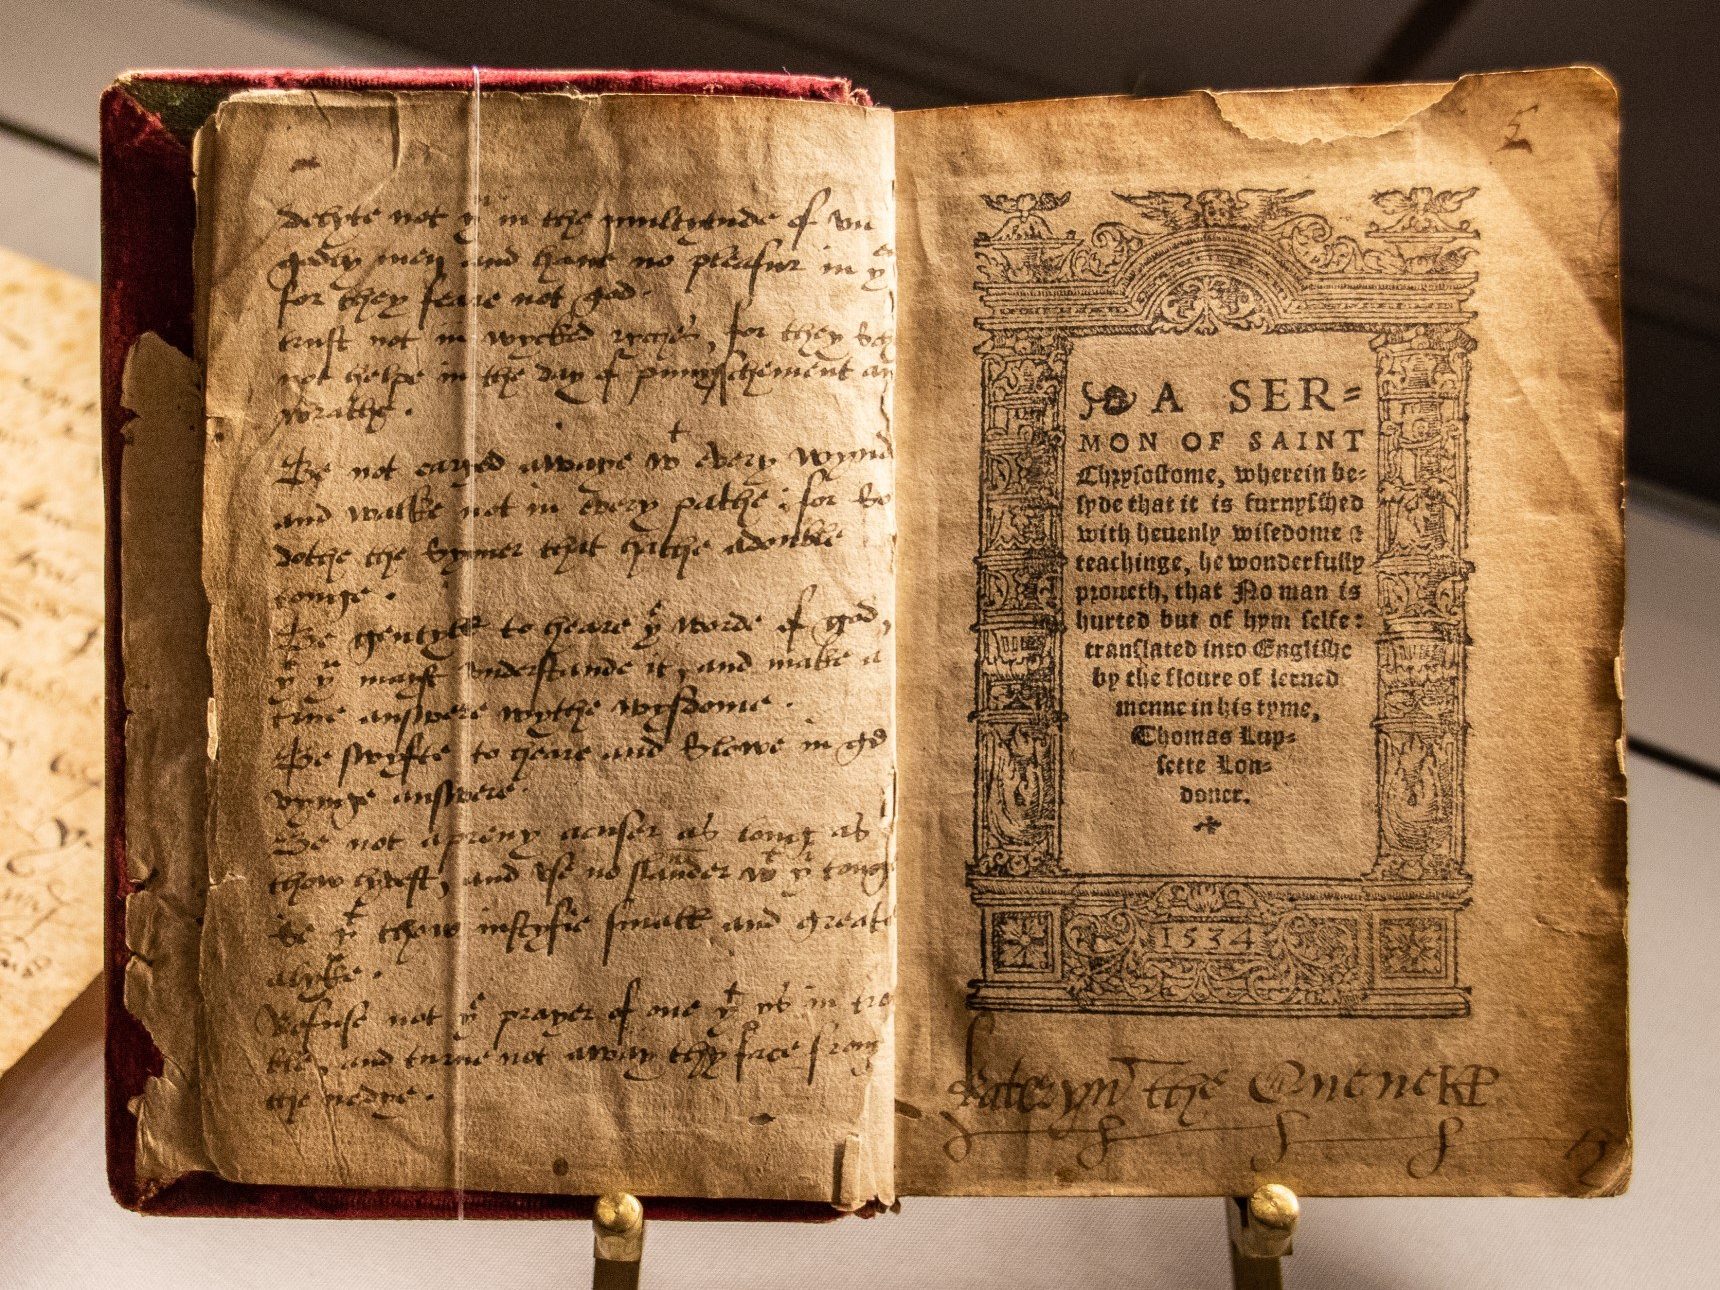 delyte not yn in the multytude of vn
godly men and haue no pleasur in
for they feare not god.
trust not in wycked ryches, for they
not helpe in the day of punysschement
wrathe.
Be not caryed awaye wt every wynd
and walke not in every pathe: for so
dothe the Synner that hathe a double
tonge.
Be gentyll to heare ye worde of god,
yt yu mayst vnderstande it, and make a
true answere wythe wysdome.
Be swyfte to heare and slowe in
answere.
Be not a preuy accuser as long as
thow lyvest, and vse no slander wt yr tonge
Se yt thow iustyfie small and greate
alyke.
Refuse not ye prayer of one yt ys in tro
ble, and turne not away thy face from
the nedye.
5
A SER=
MON OF SAINT
Chrysostome, wherein be=
syde that it is furnysshed
with heuenly wisedome &
teachinge, he wonderfully
proueth, that No man is
hurted but of hym selfe:
translated into Englisshe
by the floure of lerned
menne in his tyme,
Thomas Lup=
sette Lon=
doner.
1534
Kateryn the Quene KP